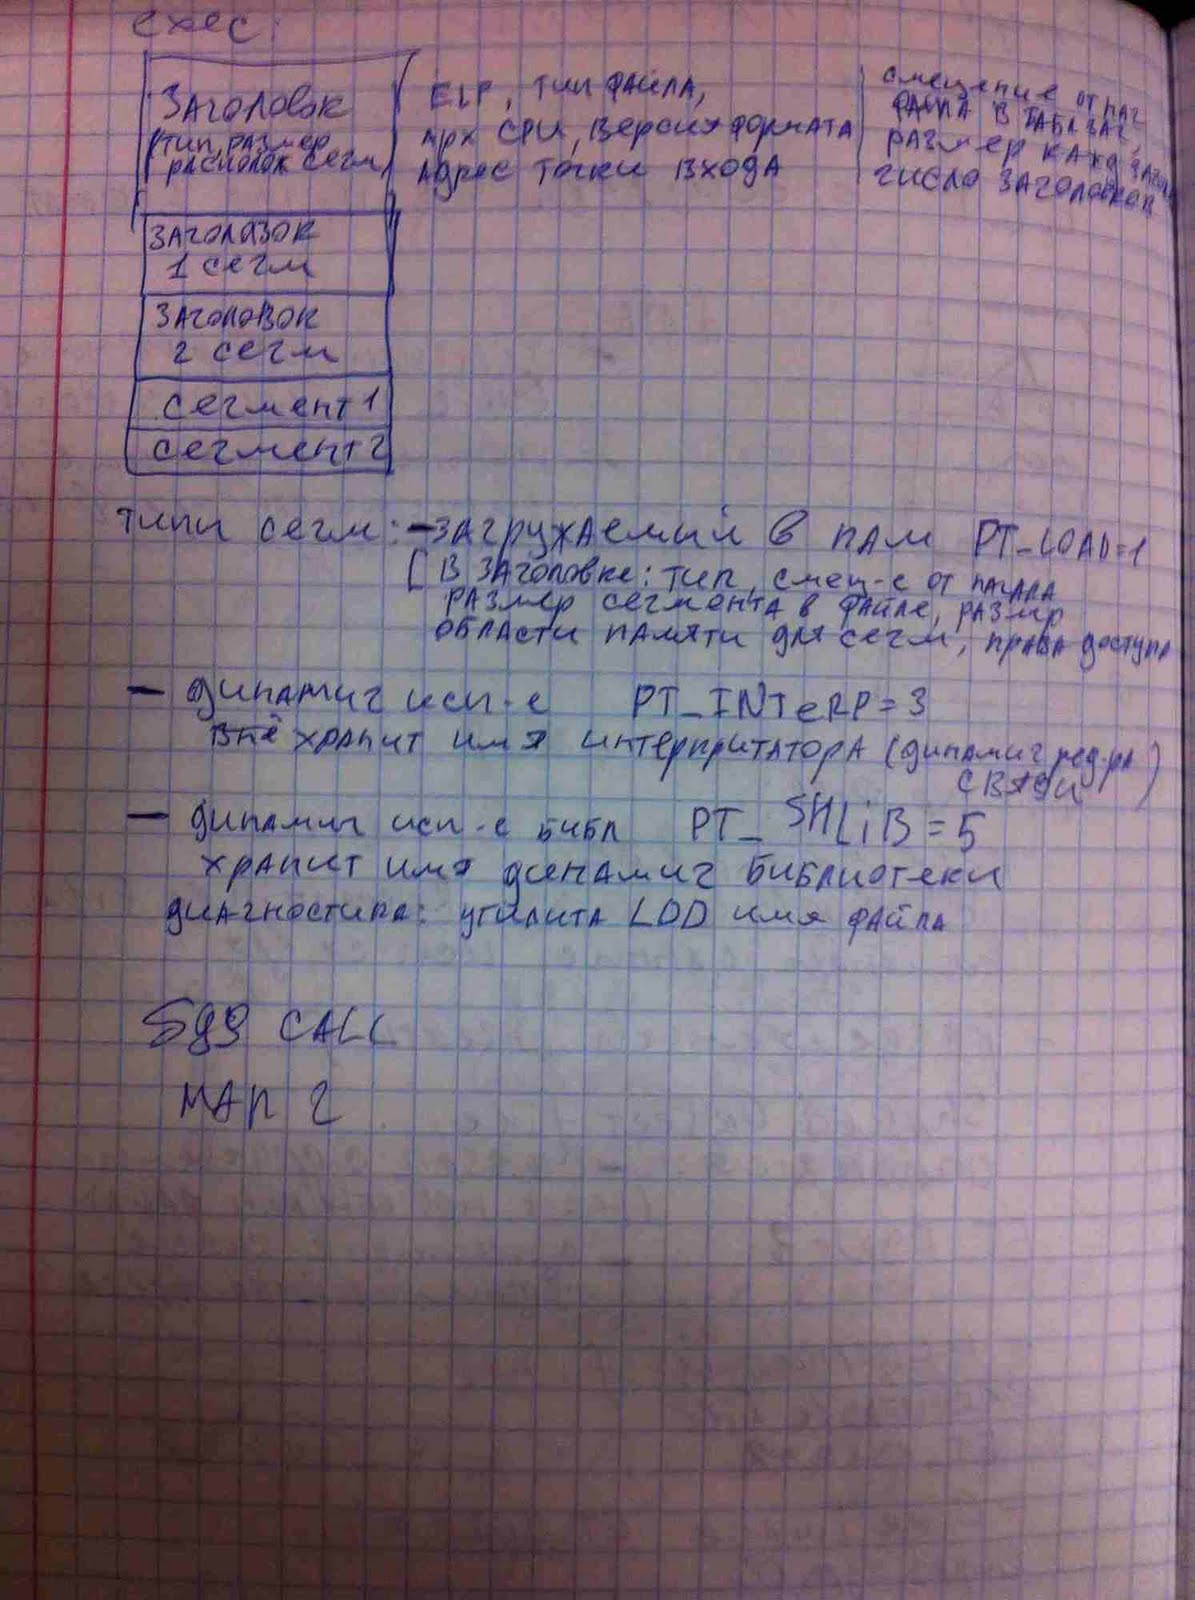 exec:
Заголовок
тип, размер
располож сегм
ELF, тип файла,
арх CPU, версия формата
адрес точки входа
смещение от нач
файла в табл заг,
размер кажд загол
число заголовков
заголовок
1 сегм
заголовок
2 сегм
сегмент 1
сегмент 2
типы сегм: - загружаемый в пам PT_LOAD=1
[В заголовке: тип, смещ-е от начала
размер сегмента в файле, размер
области памяти для сегм, права доступа
- динамич исп-е PT_INTeRP=3
хранит имя интерпритатора (динамич ред-ра
связи)
- динамич исп-е библ PT_SHLiB=5
хранит имя динамич библиотеки
диагностика: утилита LDD имя файла
CALL
МАП 2